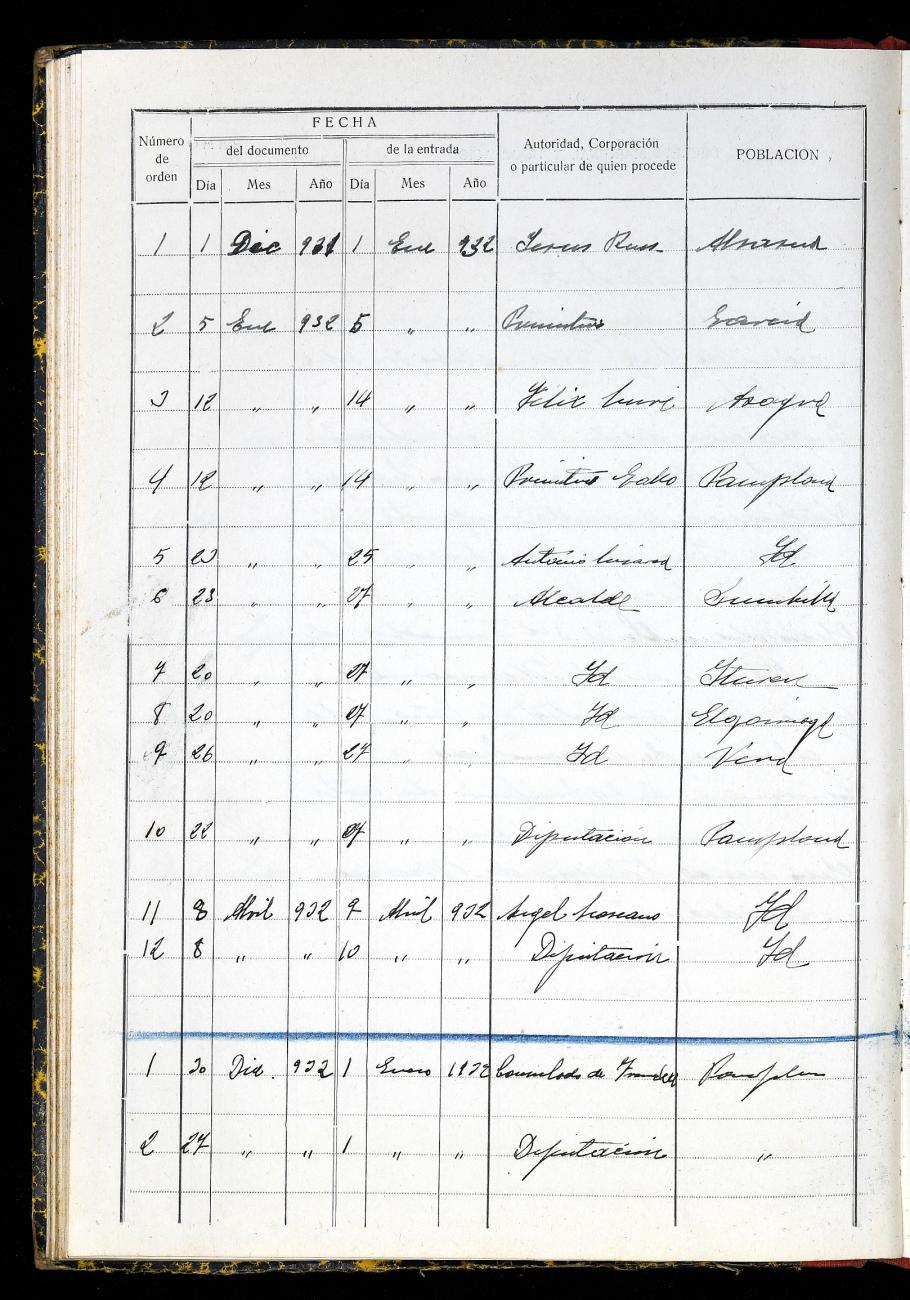 FECHA
Número de orden | del documento | de la entrada | Autoridad, Corporación o particular de quien procede | POBLACION
Día Mes Año Día Mes Año
1 1 Dic 931 1 Ene 932
2 5 Ene 932 5 " " Primitivo
3 12 " " 14 " " Félix Azagra
4 12 " " 14 " " Primitivo Pamplona
5 23 " " 25 " " Antonio Id
6 23 " " 27 " " Alcalde Sumbilla
7 20 " " 27 " " Id Ituren
8 20 " " 27 " " Id Elgorriaga
9 26 " " 27 " " Id Vera
10 22 " " 27 " " Diputación Pamplona
11 8 Abril 932 9 Abril 932 Angel Id
12 8 " " 10 " " Diputación Id
1 30 Dic. 932 1 Enero Consulado de Francia Pamplona
2 27 " " 1 " " Diputación "